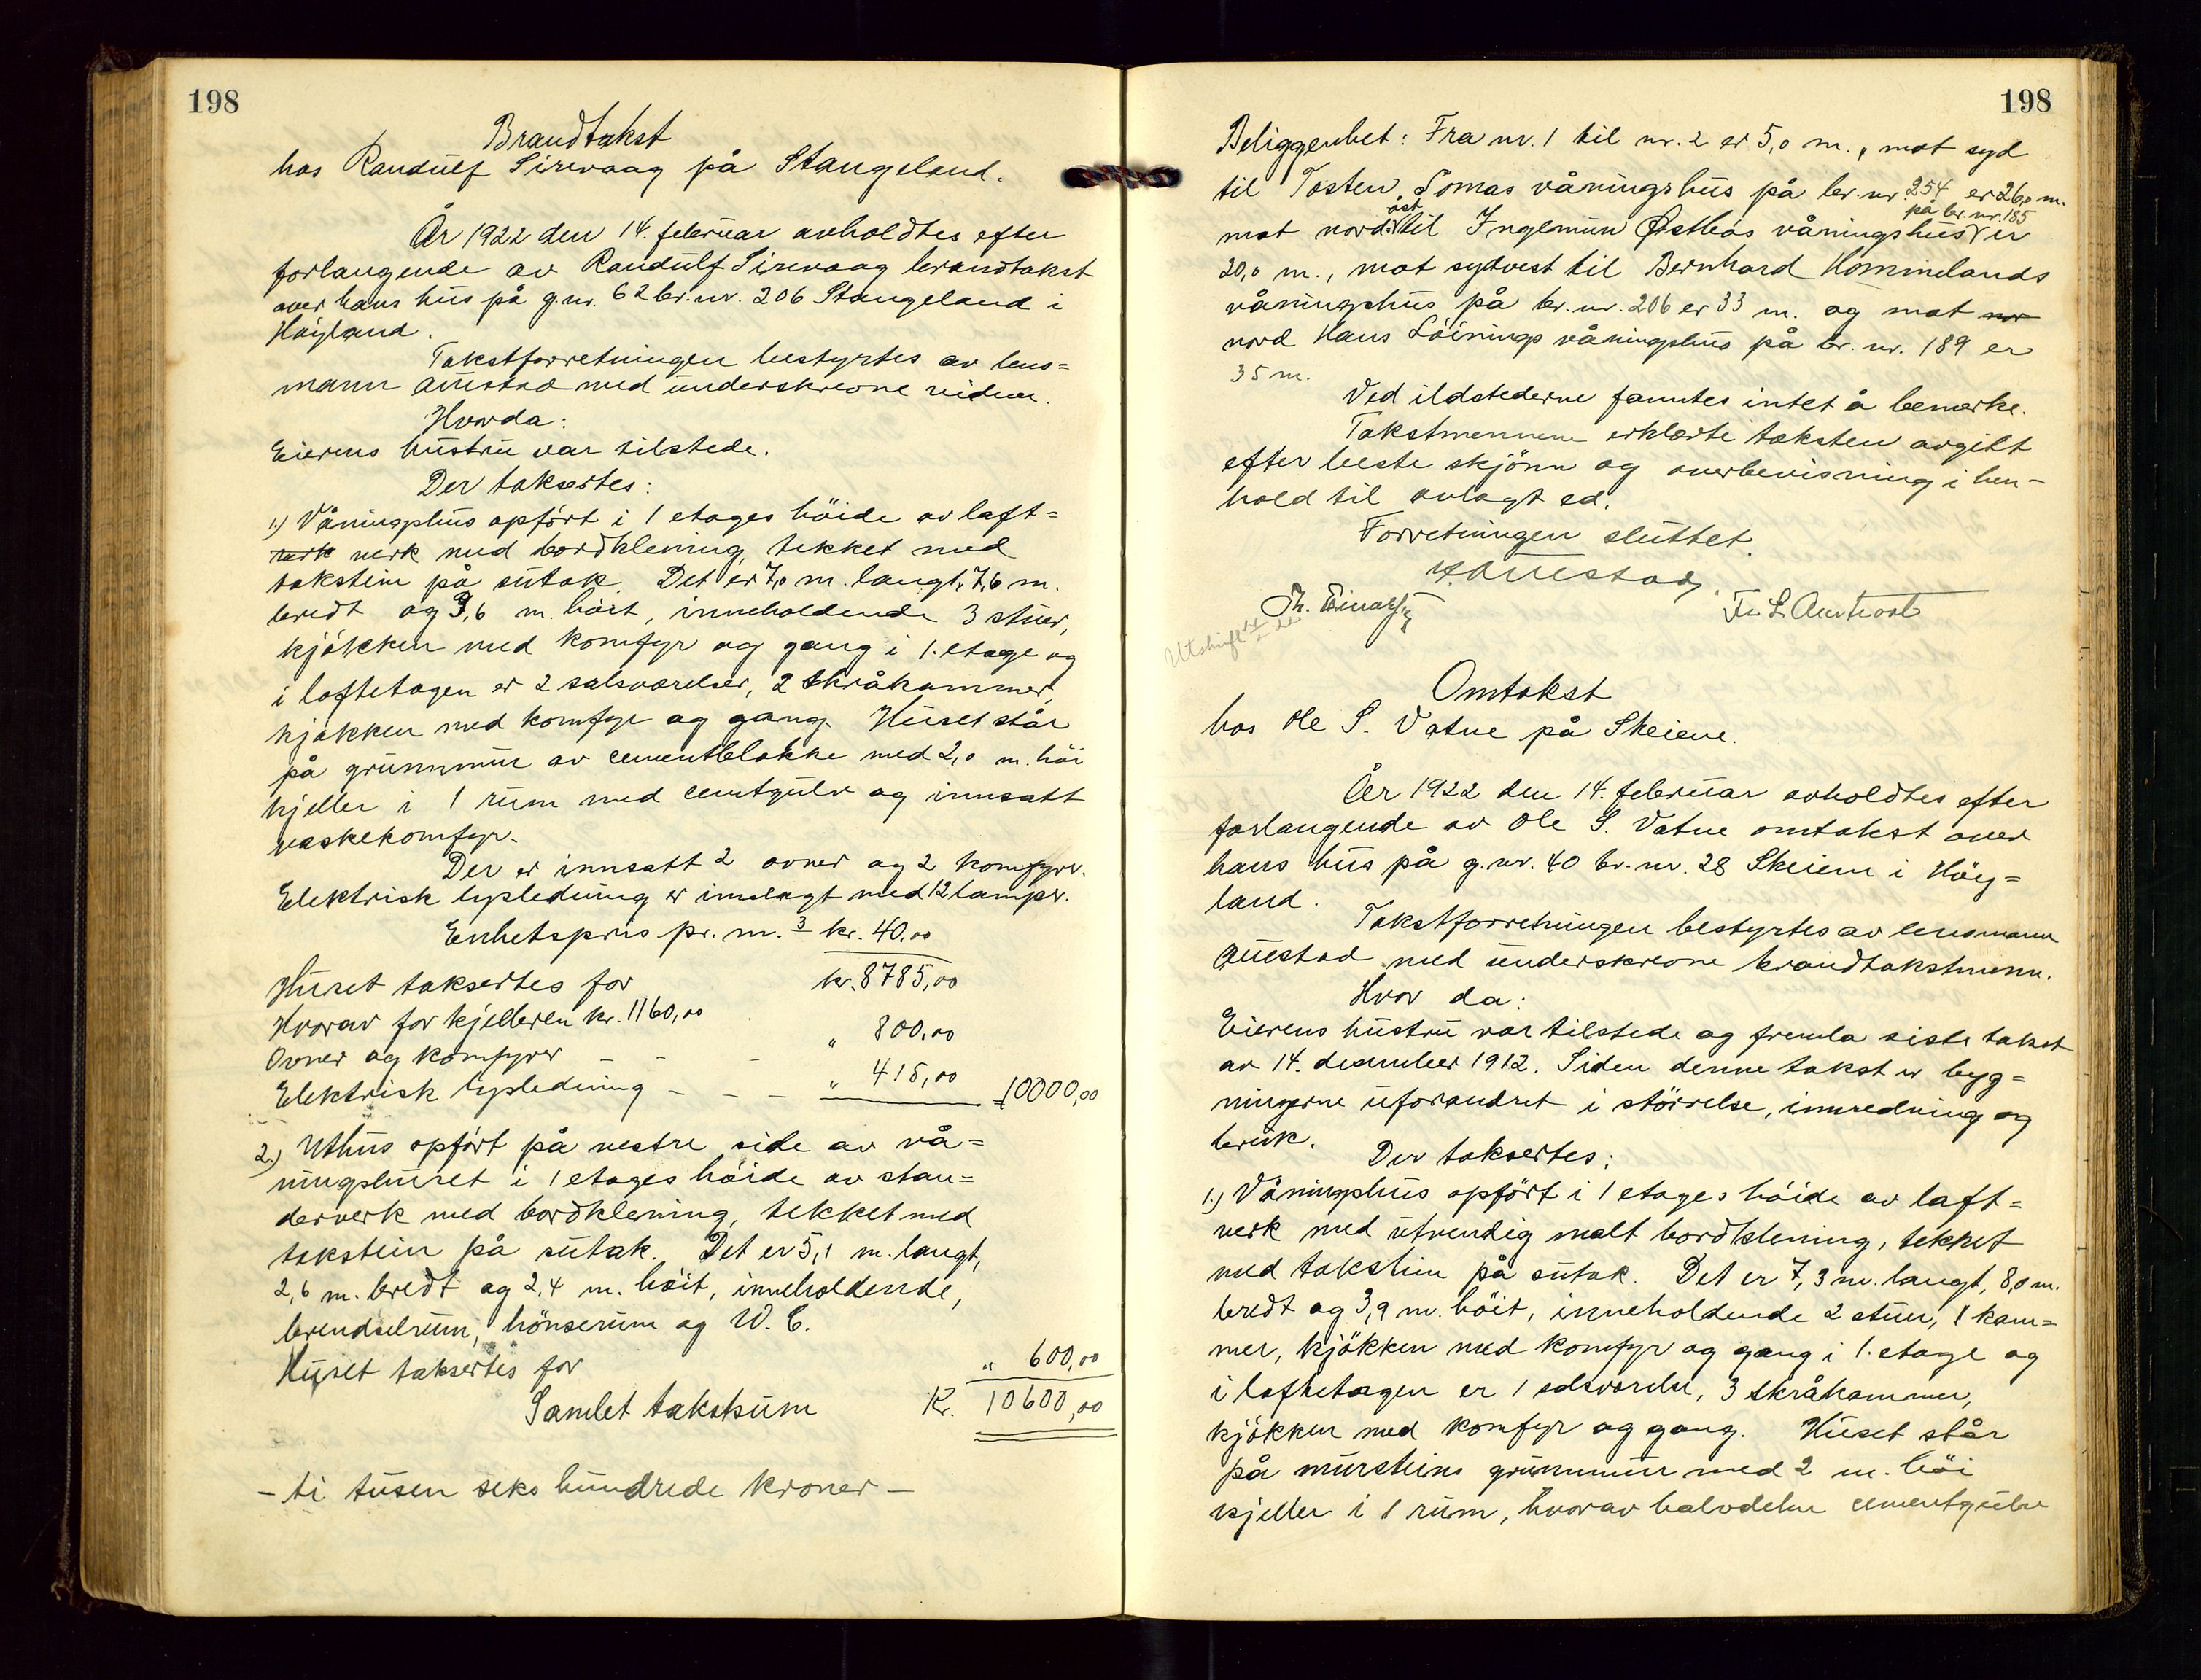 198
Brandtakst
hos Randulf Sirevaag på Stangeland.
År 1922 den 14. februar avholdtes efter
forlangende av Randulf Sirevaag brandtakst
over hans hus på g.nr. 62 br.nr. 206 Stangeland i
Høyland.
Takstforretningen bestyrtes av lens=
mann Auestad med underskrevne vidner.
Hvorda:
Eierens hustru var tilstede.
Der taksertes:
1.) Våningshus opført i 1 etages höide av laft=
verk verk med bordklening, tekket med
takstein på sutak. Det er 7,0 m. langt, 7,6 m.
bredt og 3,6 m. höit, inneholdende 3 stuer,
kjökken med komfyr og gang i 1. etage og
i loftetagen er 2 salsværelser, 2 skråkammer,
kjøkken med komfyr og gang. Huset står
på grunnmur av cementblokke med 2,0 m. höi
kjeller i 1 rum med cemtgulv og innsatt
vaskekomfyr.
Der er innsatt 2 ovner og 2 komfyrer.
Elektrisk lysledning er innlagt med 12 lamper.
Enhetspris pr. m.3 kr. 40,00
Huset taksertes for kr. 8785,00
Hvorav for kjelleren kr. 1160,00
Ovner og komfyrer - - - " 800,00
Elektrisk lysledning - - - " 415,00 10000,00
2.) Uthus opført på vestre side av vå=
ningshuset i 1 etages höide av stan=
derverk med bordklening, tekket med
takstein på sutak. Det er 5,1 m. langt,
2,6 m. bredt og 2,4 m. höit, inneholdende,
brendselrum, hönserum og W. C.
Huset taksertes for " 600,00
Samlet takstsum Kr. 10600,00
- ti tusen seks hundrede kroner -
198
Beliggenhet: Fra nr. 1 til nr. 2 er 5,0 m., mot syd
til Tosten Somas våningshus på br.nr. 254 er 26,0 m.
öst på br. nr. 185
mot nord til Ingemun Østbös våningshus er
20,0 m., mot sydvest til Bernhard Hommelands
våningshus på br.nr. 206 er 33 m. og mot nor
nord Hans Löinings våningshus på br. nr. 189 er
35 m.
Ved ildstederne fanntes intet å bemerke.
Takstmennene erklærte taksten avgitt
efter beste skjönn og overbevisning i hen-
hold til avlagt ed.
Forretningen sluttet.
A. Auestad.
Utskrift
Omtakst
hos Ole S. Vatne på Skeiene.
År 1922 den 14. februar avholdtes efter
forlangende av Ole S. Vatne omtakst over
hans hus på g.nr. 40 br.nr. 28 Skeiene i Höy=
land.
Takstforretningen bestyrtes av lensmann
Auestad med underskrevne brandtakstmenn.
Hvor da:
Eierens hustru var tilstede og fremla siste takst
av 14. desember 1912. Siden denne takst er byg=
ningerne uforandret i störrelse, innredning og
bruk.
Der taksertes:
1.) Våningshus opført i 1 etages höide av laft=
verk med utvendig malt bordklening, tekket
med takstein på sutak. Det er 7,3 m. langt, 8,0 m.
bredt og 3,9 m. höit, inneholdende 2 stuer, 1 kam=
mer, kjökken med komfyr og gang i 1. etage og
i loftetagen er 1 salsværelse, 3 skråkammer,
kjökken med komfyr og gang. Huset står
på murstens grunnmur med 2 m. höi
kjeller i 1 rum, hvorav halvdelen cementgulv